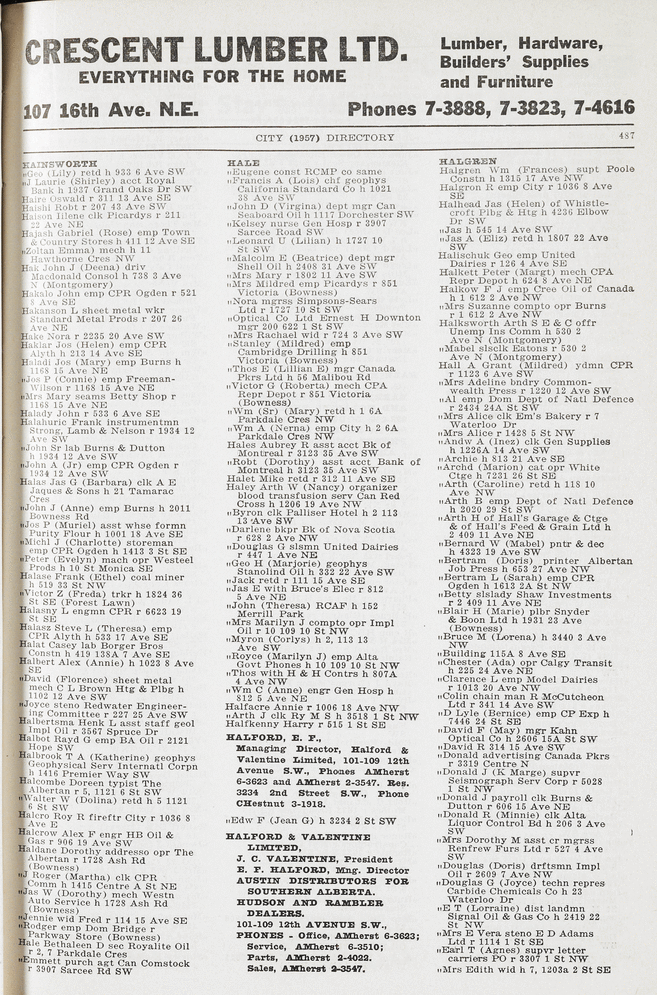 CRESCENT LUMBER LTD.
EVERYTHING FOR THE HOME
Lumber, Hardware,
Builders' Supplies
and Furniture
107 16th Ave. N.E.
Phones 7-3888, 7-3823, 7-4616
CITY (1957) DIRECTORY
487
HAINSWORTH
"Geo (Lily) retd h 933 6 Ave SW
"J Laurie (Shirley) acct Royal
Bank h 1937 Grand Oaks Dr SW
Haire Oswald r 311 13 Ave SE
Haishi Robt r 207 43 Ave SW
Haison Ilene clk Picardys r 211
22 Ave NE
Hajash Gabriel (Rose) emp Town
& Country Stores h 411 12 Ave SE
"Zoltan Emma) mech h 11
Hawthorne Cres NW
Hak John J (Deena) driv
Macdonald Consol h 738 3 Ave
N (Montgomery)
Hakalo John emp CPR Ogden r 521
8 Ave SE
Hakanson L sheet metal wkr
Standard Metal Prods r 207 26
Ave NE
Hake Nora r 2235 20 Ave SW
Haklar Jos (Helen) emp CPR
Alyth h 213 14 Ave SE
Halndi Jos (Mary) emp Burns h
1168 15 Ave NE
"Jos P (Connie) emp Freeman-
Wilson r 1168 15 Ave NE
"Mrs Mary seams Betty Shop r
1168 15 Ave NE
Halady John r 533 6 Ave SE
Halahuric Frank instrumentmn
Strong, Lamb & Nelson r 1934 12
Ave SW
"John Sr lab Burns & Dutton
h 1934 12 Ave SW
"John A (Jr) emp CPR Ogden r
1934 12 Ave SW
Halas Jas G (Barbara) clk A E
Jaques & Sons h 21 Tamarac
Cres
"John J (Anne) emp Burns h 2011
Bowness Rd
"Jos P (Muriel) asst whse formn
Purity Flour h 1001 18 Ave SW
"Michl J (Charlotte) storemn
emp CPR Ogden h 1413 3 St SE
"Peter (Evelyn) mach opr Westeel
Prods h 10 St Monica SE
Halase Frank (Ethel) coal miner
h 519 33 St NW
"Victor Z (Freda) trkr h 1824 36
St SE (Forest Lawn)
Halasny L engmn CPR r 6623 19
St SE
Halasz Steve L (Theresa) emp
CPR Alyth h 533 17 Ave SE
Halat Casey lab Borger Bros
Constn h 419 138A 7 Ave SE
Halbert Alex (Annie) h 1023 8 Ave
SE
"David (Florence) sheet metal
mech C L Brown Htg & Plbg h
1102 12 Ave SW
"Joyce steno Redwater Engineer-
ing Committee r 227 25 Ave SW
Halbertsma Henk L asst staff geol
Impl Oil r 3567 Spruce Dr
Halbot Rayd G emp BA Oil r 2121
Hope SW
Halbrook T A (Katherine) geophys
Geophysical Serv Internatl Corpn
h 1416 Premier Way SW
Halcombe Doreen typist The
Albertan r 5, 1121 6 St SW
"Walter W (Dolina) retd h 5 1121
6 St SW
Halcro Roy R fireftr City r 1036 8
Ave E
Halcrow Alex F engr HB Oil &
Gas r 906 19 Ave SW
Haldane Dorothy addresso opr The
Albertan r 1728 Ash Rd
(Bowness)
"J Roger (Martha) clk CPR
Comm h 1415 Centre A St NE
"Jas W (Dorothy) mech Westn
Auto Service h 1728 Ash Rd
(Bowness)
"Jennie wid Fred r 114 15 Ave SE
"Rodger emp Dom Bridge r
Parkway Store (Bowness)
Hale Bethaleen D sec Royalite Oil
r 2, 7 Parkdale Cres
"Emmett purch agt Can Comstock
r 3907 Sarcee Rd SW
HALE
"Eugene const RCMP co same
"Francis A (Lois) chf geophys
California Standard Co h 1021
38 Ave SW
"John D (Virginia) dept mgr Can
Seaboard Oil h 1117 Dorchester SW
"Kelsey nurse Gen Hosp r 3907
Sarcee Road SW
"Leonard U (Lilian) h 1727 10
St SW
"Malcolm E (Beatrice) dept mgr
Shell Oil h 2408 31 Ave SW
"Mrs Mary r 1802 11 Ave SW
"Mrs Mildred emp Picardys r 851
Victoria (Bowness)
"Nora mgrss Simpsons-Sears
Ltd r 1727 10 St SW
"Optical Co Ltd Ernest H Downton
mgr 200 622 1 St SW
"Mrs Rachael wid r 724 3 Ave SW
"Stanley (Mildred) emp
Cambridge Drilling h 851
Victoria (Bowness)
"Thos E (Lillian E) mgr Canada
Pkrs Ltd h 56 Malibou Rd
"Victor G (Roberta) mech CPA
Repr Depot r 851 Victoria
(Bowness)
"Wm (Sr) (Mary) retd h 1 6A
Parkdale Cres NW
"Wm A (Nerna) emp City h 2 6A
Parkdale Cres NW
Hales Aubrey R asst acct Bk of
Montreal r 3123 35 Ave SW
"Robt (Dorothy) asst acct Bank of
Montreal h 3123 35 Ave SW
Halet Mike retd r 312 11 Ave SE
Haley Arth W (Nancy) organizer
blood transfusion serv Can Red
Cross h 1206 19 Ave NW
"Byron clk Palliser Hotel h 2 113
13 Ave SW
"Darlene bkpr Bk of Nova Scotia
r 628 2 Ave NW
"Douglas G slsmn United Dairies
r 447 1 Ave NE
"Geo H (Marjorie) geophys
Stanolind Oil h 332 22 Ave SW
"Jack retd r 111 15 Ave SE
"Jas E with Bruce's Elec r 812
5 Ave NE
"John (Theresa) RCAF h 152
Merrill Park
"Mrs Marilyn J compto opr Impl
Oil r 10 109 10 St NW
"Myron (Corlys) h 2, 113 13
Ave SW
"Royce (Marilyn J) emp Alta
Govt Phones h 10 109 10 St NW
"Thos with H & H Contrs h 807A
4 Ave NW
"Wm C (Anne) engr Gen Hosp h
812 5 Ave NE
Halfacre Annie r 1006 18 Ave NW
"Arth J clk Ry M S h 3518 1 St NW
Halfkenny Harry r 515 1 St SE
HALFORD, E. F.,
Managing Director, Halford &
Valentine Limited, 101-109 12th
Avenue S.W., Phones AMherst
6-3623 and AMherst 2-3547. Res.
3234 2nd Street S.W., Phone
CHestnut 3-1918.
"Edw F (Jean G) h 3234 2 St SW
HALFORD & VALENTINE
LIMITED,
J. C. VALENTINE, President
E. F. HALFORD, Mng. Director
AUSTIN DISTRIBUTORS FOR
SOUTHERN ALBERTA.
HUDSON AND RAMBLER
DEALERS.
101-109 12th AVENUE S.W.,
PHONES - Office, AMherst 6-3623;
Service, AMherst 6-3510;
Parts, AMherst 2-4022.
Sales, AMherst 2-3547.
HALGREN
Halgren Wm (Frances) supt Poole
Constn h 1315 17 Ave NW
Halgron R emp City r 1036 8 Ave
SE
Halhead Jas (Helen) of Whistle-
croft Plbg & Htg h 4236 Elbow
Dr SW
"Jas h 545 14 Ave SW
"Jas A (Eliz) retd h 1807 22 Ave
SW
Halischuk Geo emp United
Dairies r 126 4 Ave SE
Halkett Peter (Margt) mech CPA
Repr Depot h 624 8 Ave NE
Halkow F J emp Cree Oil of Canada
h 1 612 2 Ave NW
"Mrs Suzanne compto opr Burns
r 1 612 2 Ave NW
Halksworth Arth S E & C offr
Unemp Ins Comm h 530 2
Ave N (Montgomery)
"Mabel slsclk Eatons r 530 2
Ave N (Montgomery)
Hall A Grant (Mildred) ydmn CPR
r 1123 6 Ave SW
"Mrs Adeline bndry Common-
wealth Press r 1220 12 Ave SW
"Al emp Dom Dept of Natl Defence
r 2434 24A St SW
"Mrs Alice clk Em's Bakery r 7
Waterloo Dr
"Mrs Alice r 1428 5 St NW
"Andw A (Inez) clk Gen Supplies
h 1226A 14 Ave SW
"Archie h 813 21 Ave SE
"Archd (Marion) cat opr White
Ctge h 7231 26 St SE
"Arth (Caroline) retd h 118 10
Ave NW
"Arth B emp Dept of Natl Defence
h 2020 29 St SW
"Arth H of Hall's Garage & Ctge
& of Hall's Feed & Grain Ltd h
2 409 11 Ave NE
"Bernard W (Mabel) pntr & dec
h 4323 19 Ave SW
"Bertram (Doris) printer Albertan
Job Press h 653 27 Ave NW
"Bertram L (Sarah) emp CPR
Ogden h 1613 2A St NW
"Betty slslady Shaw Investments
r 2 409 11 Ave NE
"Blair H (Marie) plbr Snyder
& Boon Ltd h 1931 23 Ave
(Bowness)
"Bruce M (Lorena) h 3440 3 Ave
NW
"Building 115A 8 Ave SE
"Chester (Ada) opr Calgy Transit
h 225 24 Ave NE
"Clarence L emp Model Dairies
r 1013 20 Ave NW
"Colin chain man R McCutcheon
Ltd r 341 14 Ave SW
"D Lyle (Bernice) emp CP Exp h
7446 24 St SE
"David F (May) mgr Kahn
Optical Co h 2606 15A St SW
"David R 314 15 Ave SW
"Donald advertising Canada Pkrs
r 3319 Centre N
"Donald J (K Marge) supvr
Seismograph Serv Corp r 5028
1 St NW
"Donald J payroll clk Burns &
Dutton r 606 15 Ave NE
"Donald R (Minnie) clk Alta
Liquor Control Bd h 206 3 Ave
SW
"Mrs Dorothy M asst cr mgrss
Renfrew Furs Ltd r 527 4 Ave
SW
"Douglas (Doris) drftsmn Impl
Oil r 2609 7 Ave NW
"Douglas G (Joyce) techn repres
Carbide Chemicals Co h 23
Waterloo Dr
"E T (Lorraine) dist landmn
Signal Oil & Gas Co h 2419 22
St NW
"Mrs E Vera steno E D Adams
Ltd r 1114 1 St SE
"Earl T (Agnes) supvr letter
carriers PO r 3307 1 St NW
"Mrs Edith wid h 7, 1203a 2 St SE